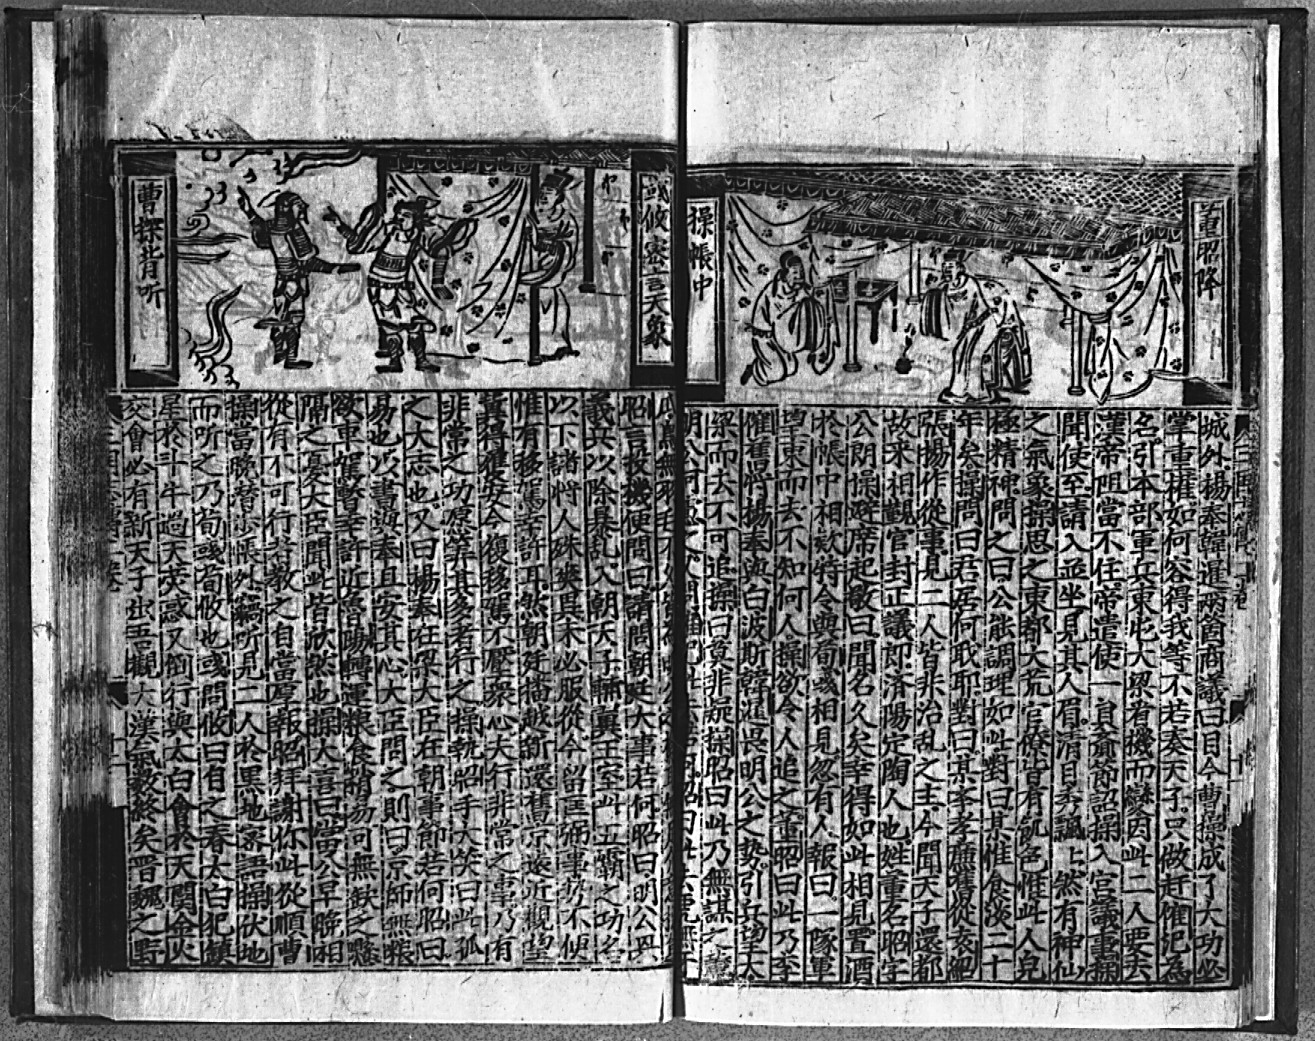 董昭降
操帳中
城外楊奉韓暹兩箇商議曰目今曹操成了大功必
掌重權如何容得我等不若奏天子只做赶傕汜為
名引本部軍兵東屯大梁看機而變因此二人要去
漢帝阻當不住帝遣使一員賫節詔操入宮議事操
聞使至請入並坐見其人眉清目秀飄上然有神仙
之氣象操思之東都大荒官僚皆有飢色惟此人皃
極精神問之曰公能調理如此對曰某惟食淡二十
年矣操問曰君居何职耶對曰某本孝廉舊從袁紹
張揚作從事見二人皆非治乱之主今聞天子還都
故来相覲官封正議郎済陽定陶人也姓董名昭字
公朗操避席起敬曰聞名久矣幸得如此相見置酒
於帳中相欵待令與荀彧相見忽有人報曰一隊軍
望東而去不知何人操欲令人追之董昭曰此乃李
傕舊将楊奉與白波斯韓暹畏明公之勢引兵望大
梁而去不可追操曰莫非疑操昭曰此乃無謀之
彧攸密言天象
曹操背听
昭言投機便問曰請問朝廷大事若何昭曰明公興
義兵以除暴乱入朝天子輔翼王室此五霸之功名
以下諸将人殊異未必服從今留匡弼事势不便
惟有移駕幸許耳然朝廷播越新還舊京遠近觀望
冀得獲安今復移駕不壓衆心夫行非常之事乃有
非常之功愿筭其多者行之操執昭手大笑曰此孤
之大志也又曰楊奉在梁大臣在朝事節若何昭曰
易也以書與奉且安其心大臣問之則曰京師無粮
欲車駕暫幸許近魯陽轉運粮食稍易可無歉乏
隔之憂大臣聞此皆欣然也操大喜曰當公早晚相
從有不可行者教之自當厚報昭拜謝你此從順曹
操當晚潜步帳外竊听見二人於黒地密語操伏地
而听之乃荀彧荀攸也彧問攸曰自之春太白犯鎮
星於斗牛過天熒惑又倒行與太白會於天関金火
交會必有新天子出吾觀大漢氣数終矣晋魏之野